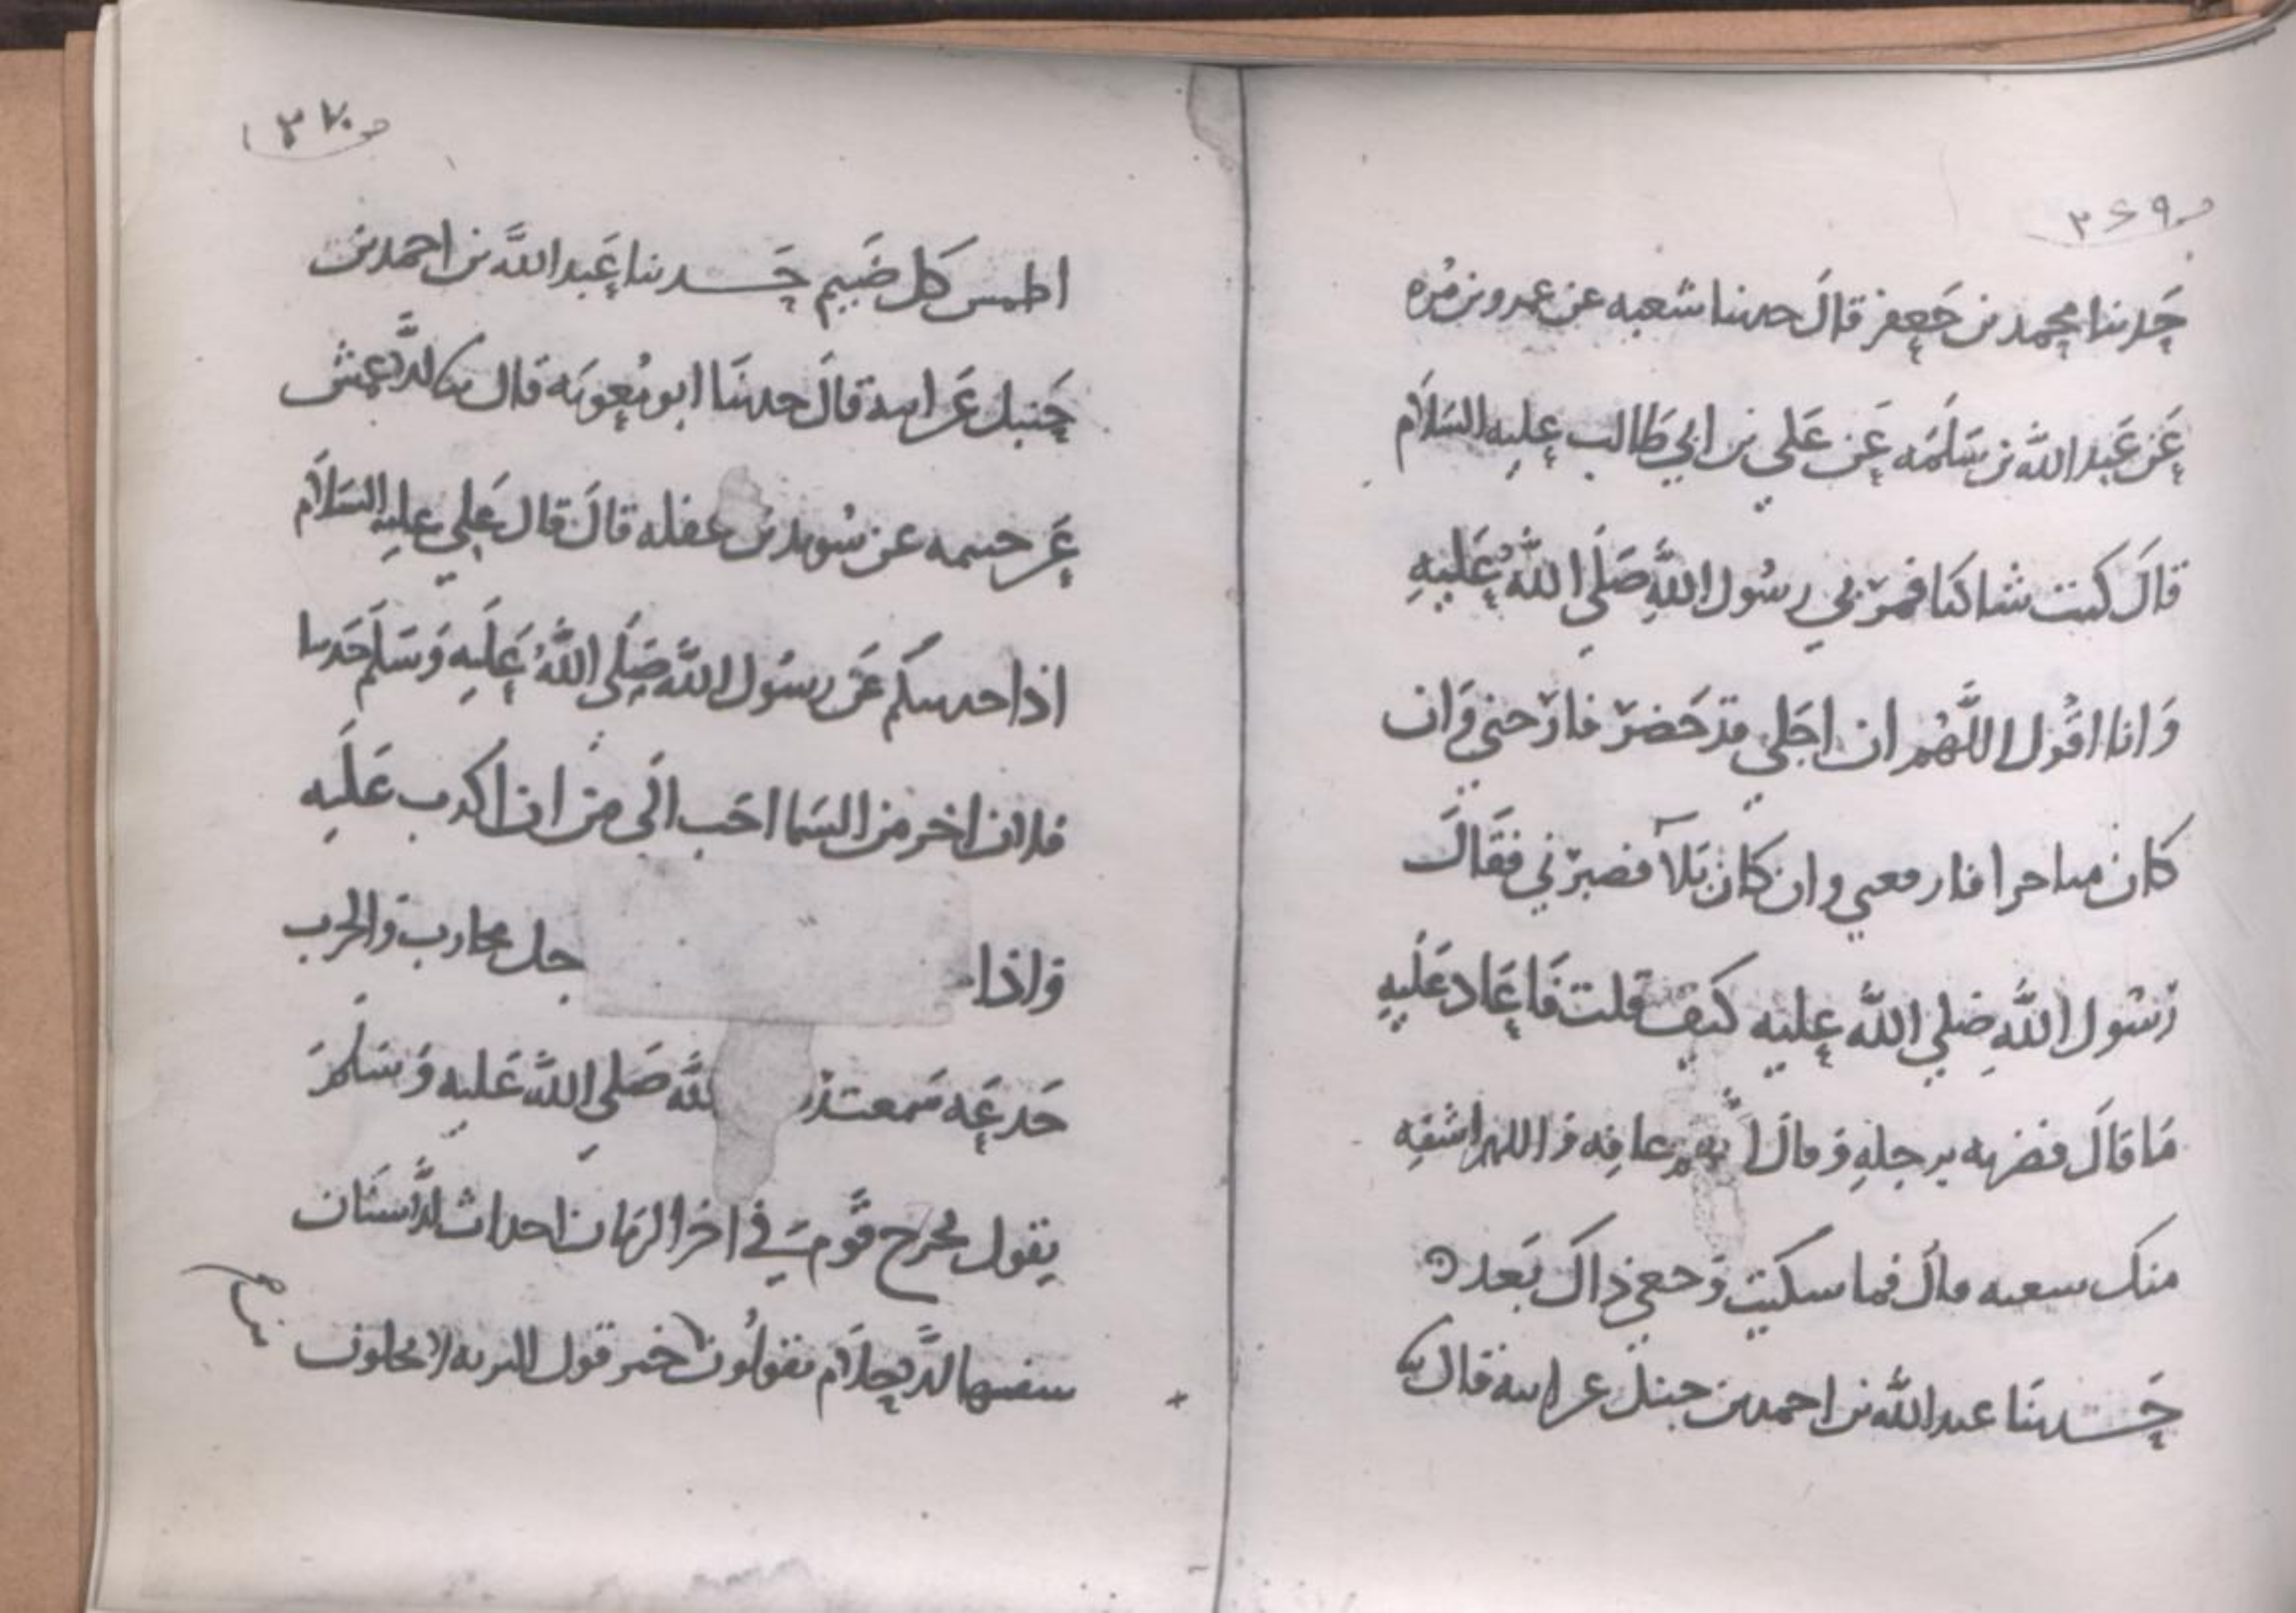 ص ٣٦٩
حدثنا محمد بن جعفر قال حدثنا شعبه عن عمرو بن مره
عن عبد الله بن سلمه عن علي بن ابي طالب عليه السلام
قال كنت شاكيا فمر بي رسول الله صلي الله عليه
وانا اقول اللهم ان اجلي قد حضر فارحني وان
كان متاخرا فارفعني وان كان بلآ فصبرني فقال
رسول الله صلي الله عليه كيف قلت فاعاد عليه
ما قال فضربه برجله وقال عافه واللهم اشفه
شعبه قال فما اشتكيت وجعي ذاك بعد
حدثنا عبد الله بن احمد بن حنبل عن ابيه قال
ص ٣٧٠
كل حدثنا عبد الله بن احمد بن
حنبل عن ابيه قال حدثنا ابو معويه قال الاعمش
عن خيثمه عن سويد بن غفله قال قال علي عليه السلام
اذا حدثتكم عن رسول الله صلي الله عليه وسلم حديثا
فلان اخر من السما احب الي من ان اكذب عليه
واذا جل محارب والحرب
خدعه سمعت لله صلي الله عليه وسلم
يقول يخرج قوم في اخر الزمان احداث الاسنان
سفها الاحلام يقولون خير قول البريه لا